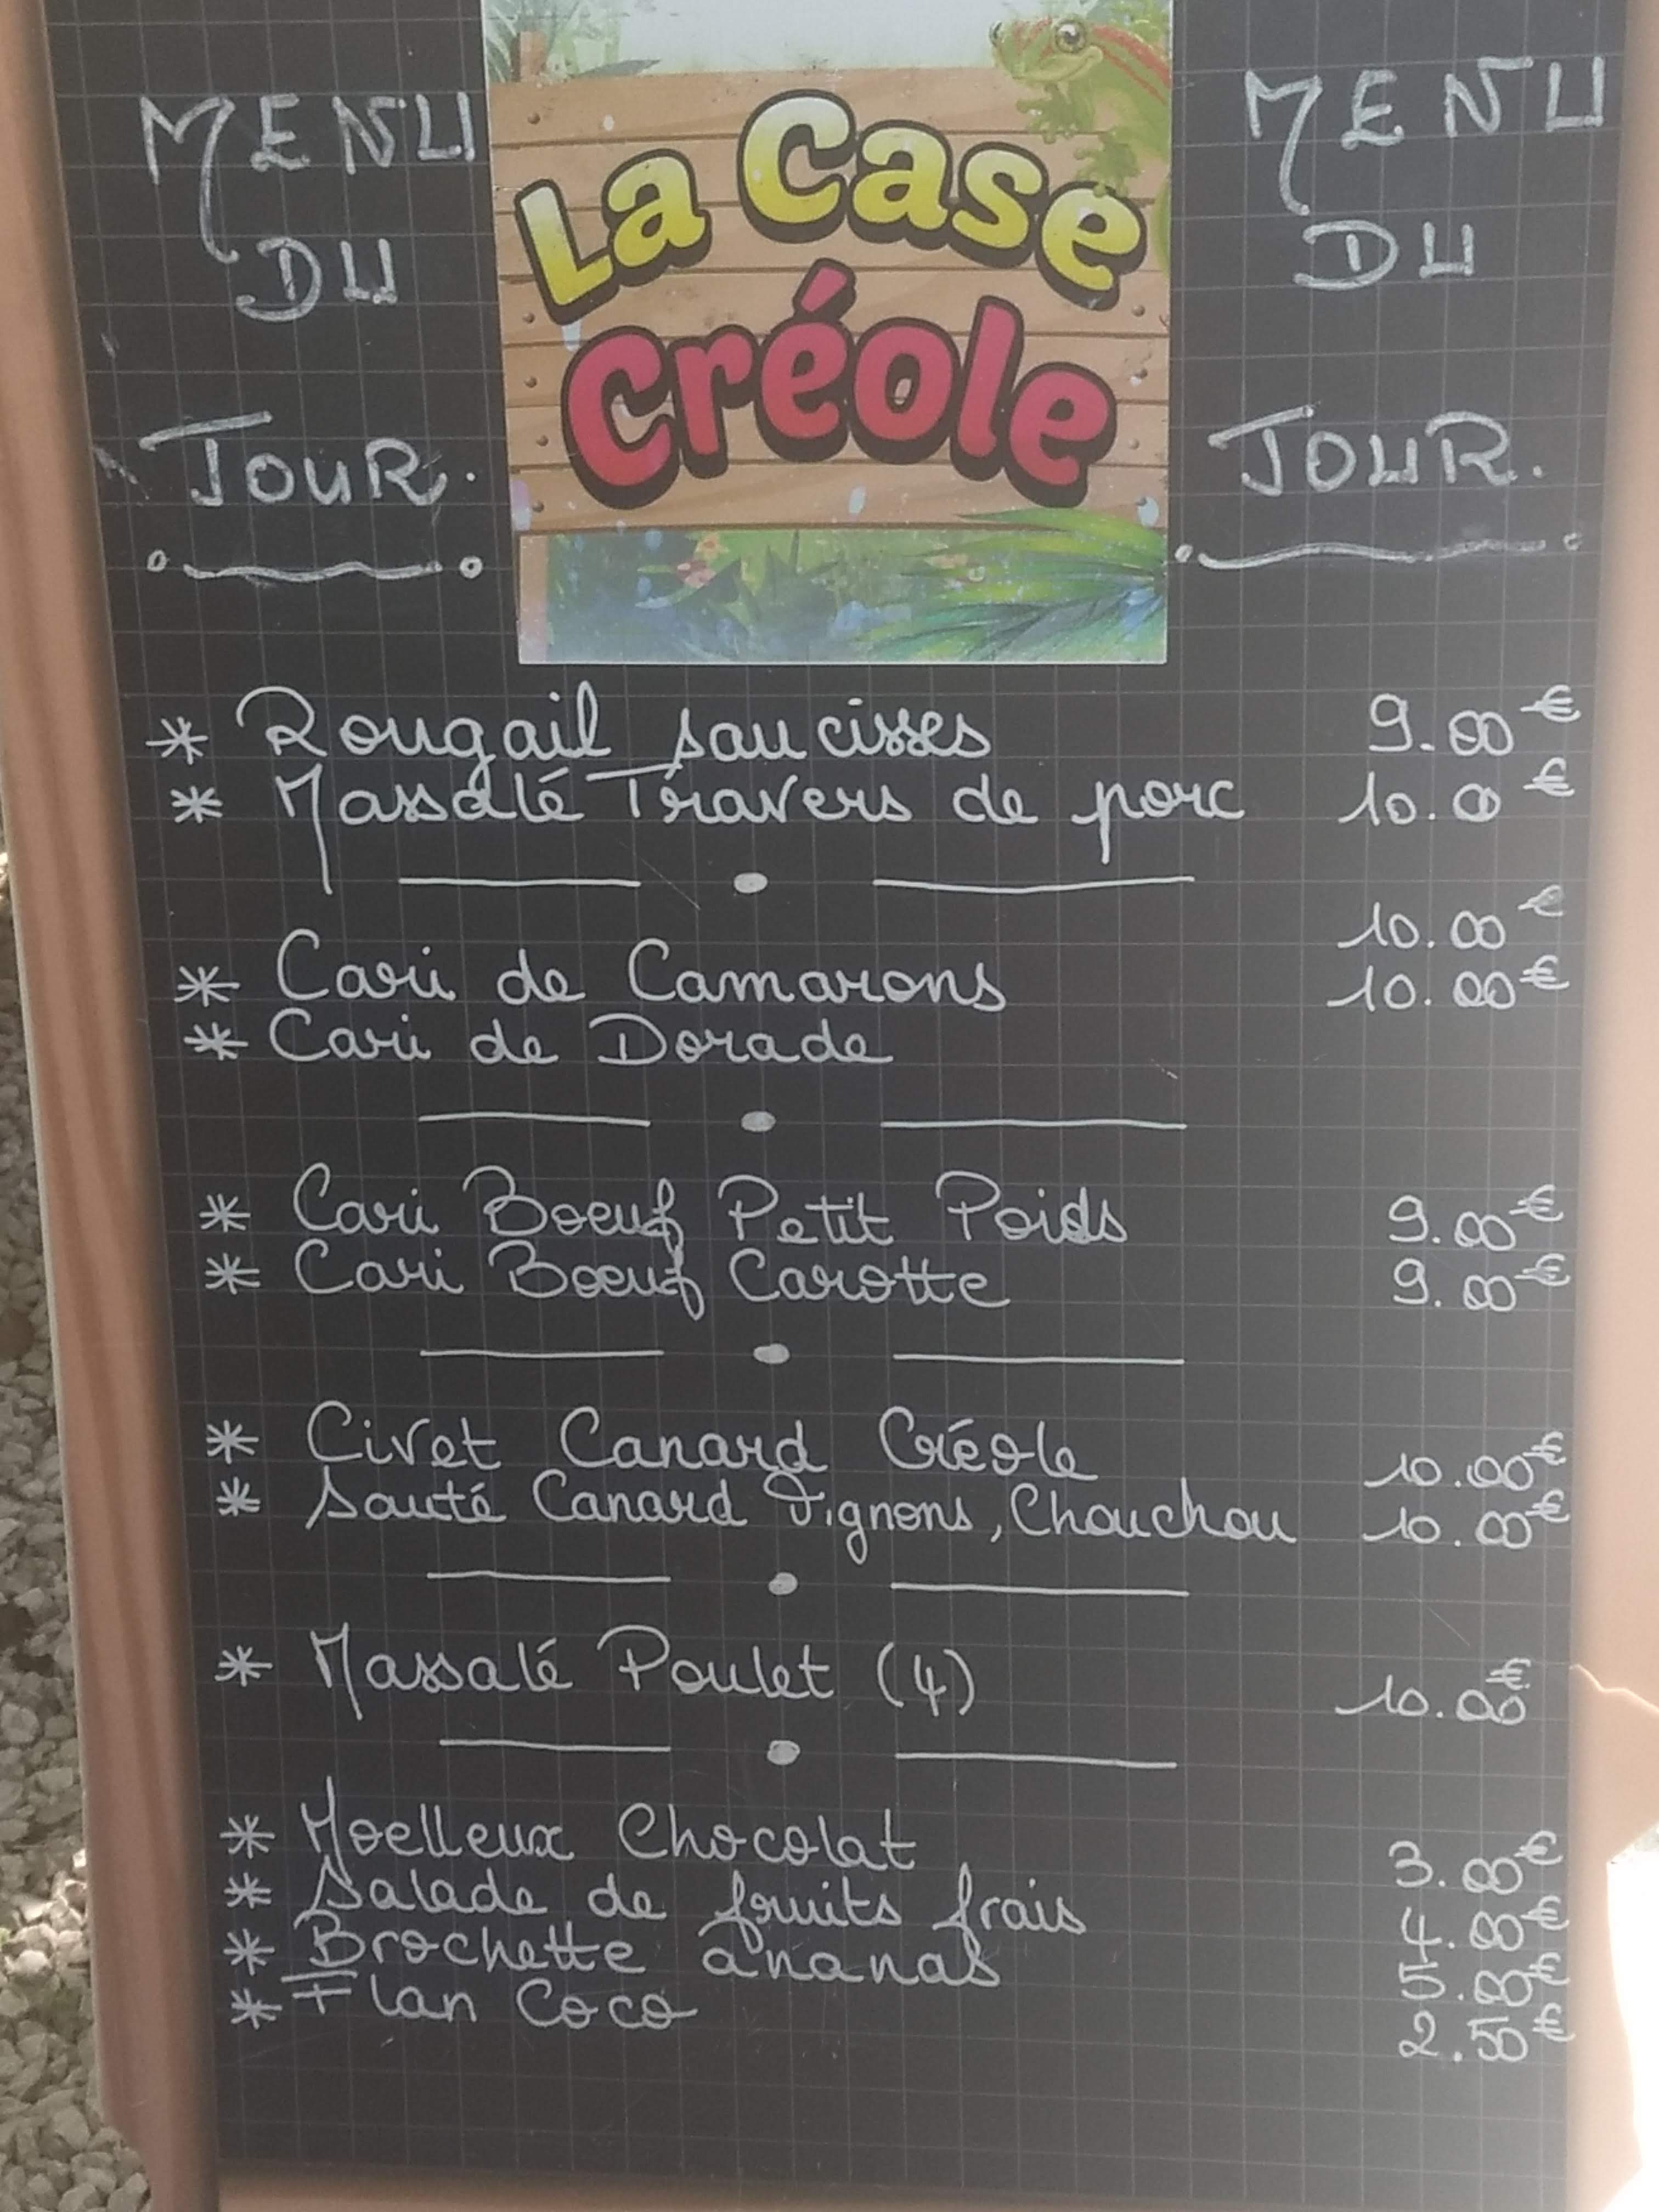 MENU
DU
JOUR.
La Case
Créole
MENU
DU
JOUR.
* Rougail saucisses 9.00€
* Massalé Travers de porc 10.00€
* Cari de Camarons 10.00€
* Cari de Dorade 10.00€
* Cari Boeuf Petit Poids 9.00€
* Cari Boeuf Carotte 9.00€
* Civet Canard Créole 10.00€
* Sauté Canard Oignons, Chouchou 10.00€
* Massalé Poulet (4) 10.00€
* Moelleux Chocolat 3.00€
* Salade de fruits frais 4.00€
* Brochette ananas 5.00€
* Flan Coco 2.50€